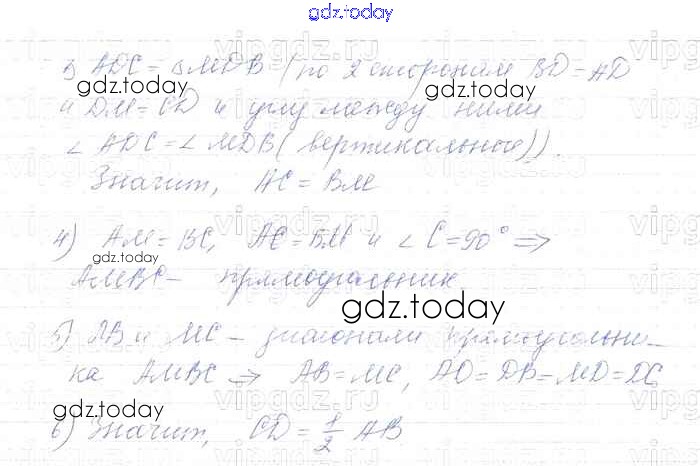 gdz.today
Δ ADC = Δ MDB (по 2 сторонам BD = AD
gdz.today gdz.today
и DM = CD и углу между ними
∠ ADC = ∠ MDB (вертикальные)).
Значит, AC = BM
4) AM = BC, AC = BM и ∠ C = 90° ⇒
gdz.today
AMBC – прямоугольник
gdz.today
5) AB и MC – диагонали прямоугольни-
ка AMBC ⇒ AB = MC, AD = DB = MD = DC
gdz.today
6) Значит, CD = 1/2 AB